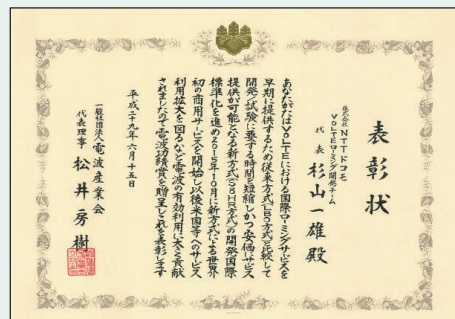 表彰状
株式会社NTTドコモ
VoLTEローミング開発チーム
代表 杉山一雄 殿
あなたがたはVoLTEにおける国際ローミングサービスを
早期に提供するため従来方式(LBO方式)と比較して
開発・試験に要する時間を短縮しかつ安価にサービス
提供が可能となる新方式(S8HR方式)の開発国際
標準化を進め2015年10月に新方式による世界
初の商用サービスを開始し以後米国等へのサービス
利用拡大を図るなど電波の有効利用に大きく貢献
されましたので電波功績賞を贈呈しこれを表彰します
平成二十九年六月十五日
一般社団法人電波産業会
代表理事 松井房樹